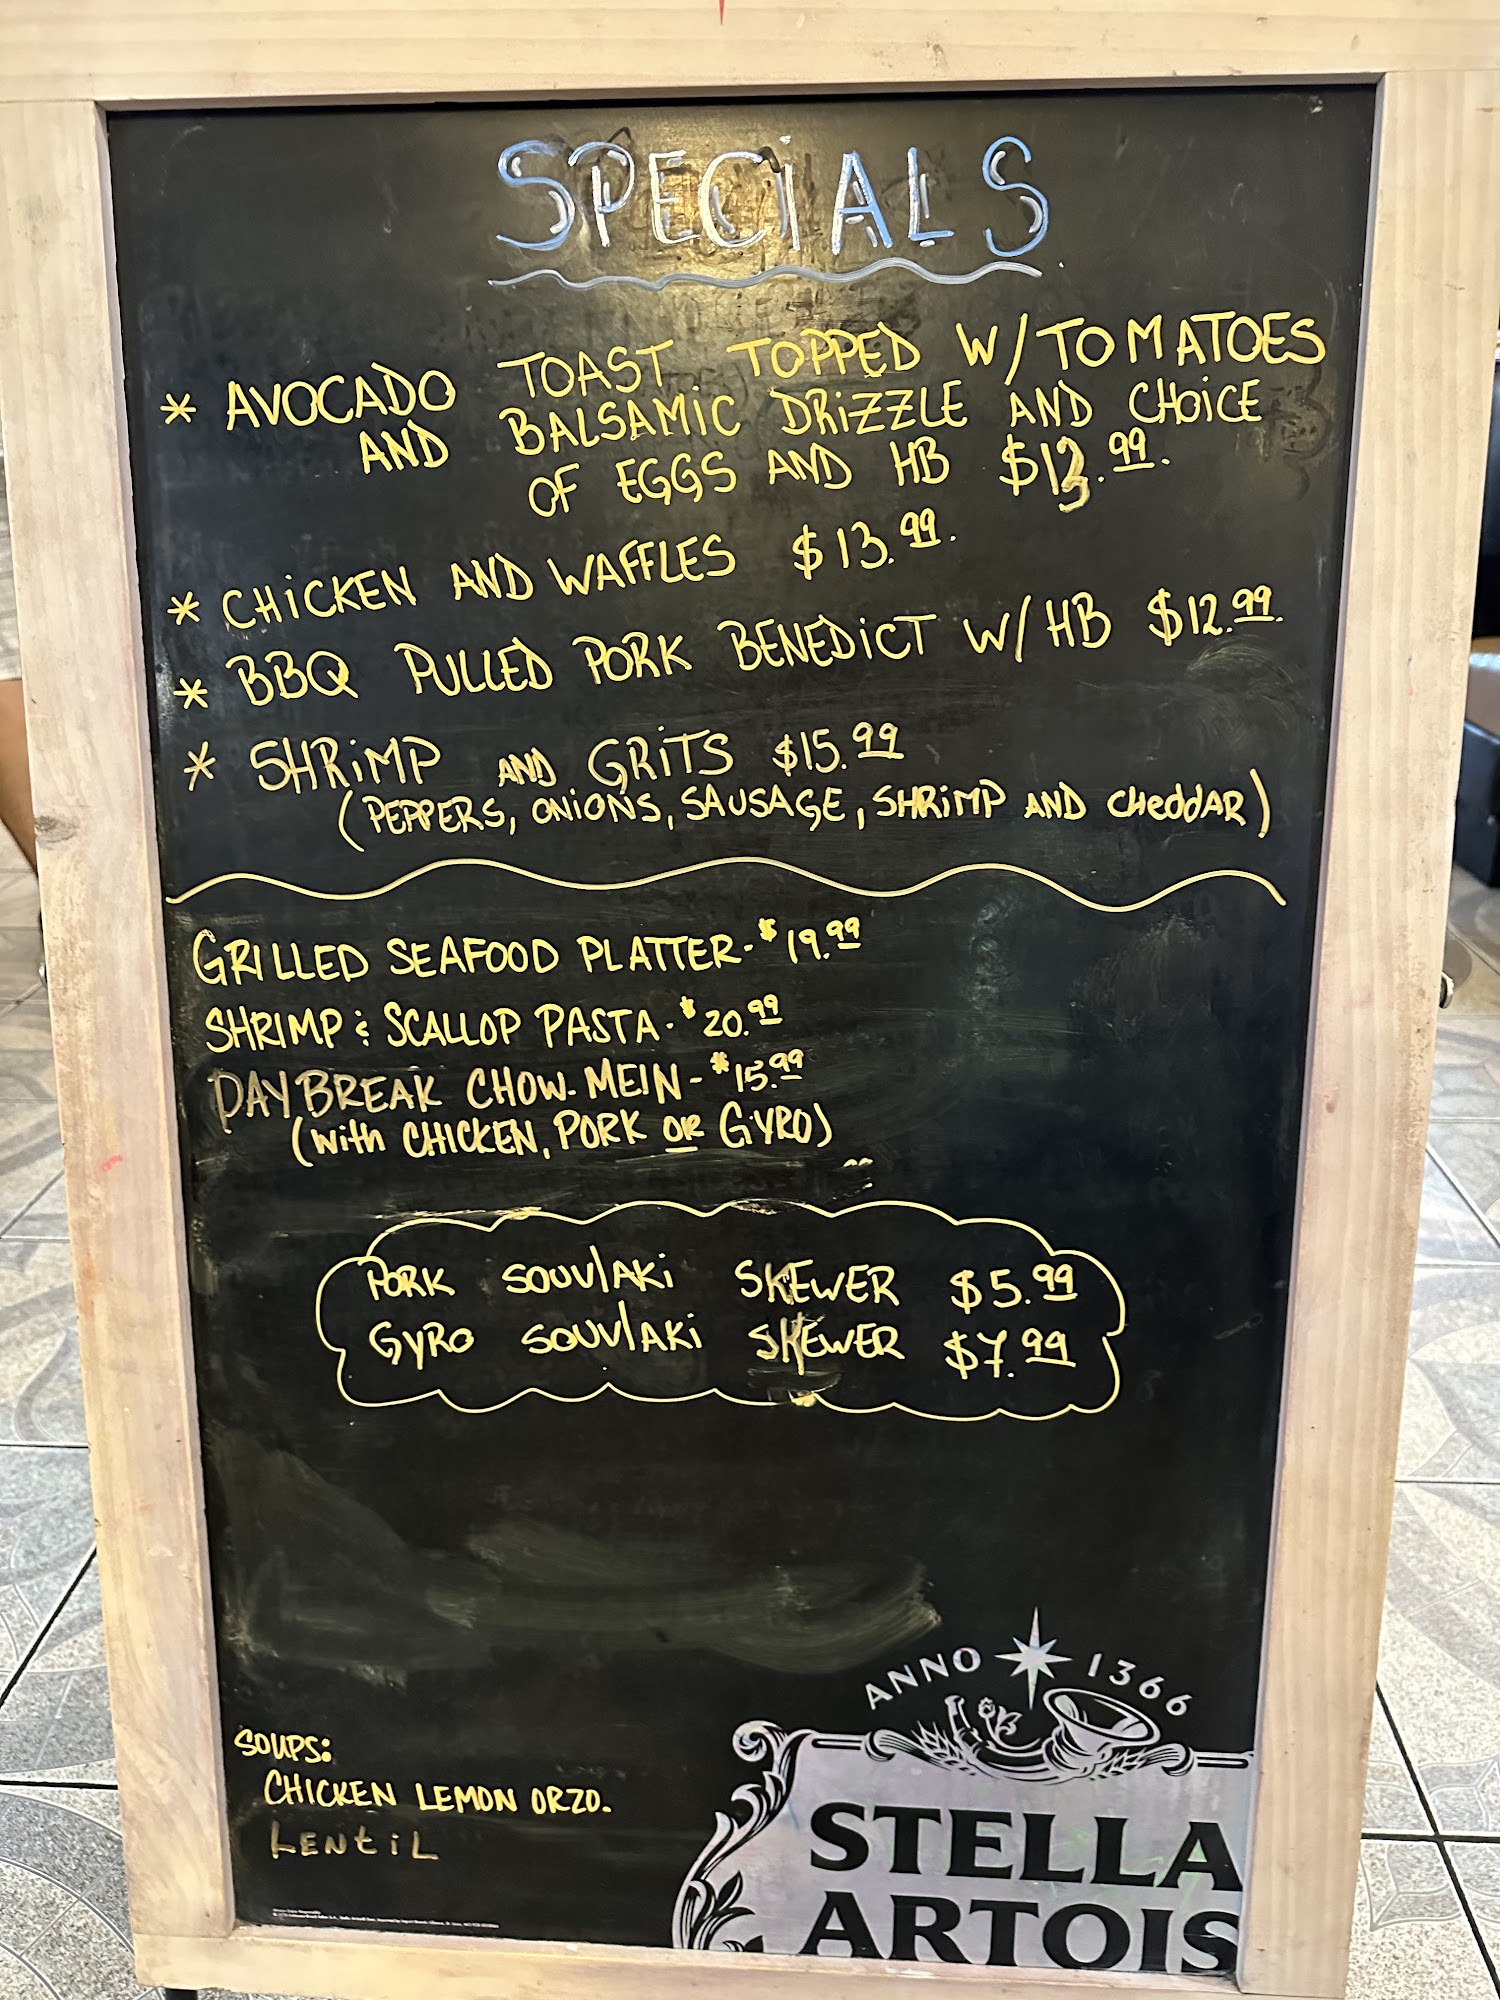 SPECiALS
* AVOCADO TOAST TOPPED W/TOMATOES
AND BALSAMiC DRiZZLE AND CHOiCE
OF EGGS AND HB $13.99.
* CHiCKEN AND WAFFLES $13.99.
* BBQ PULLED PORK BENEDiCT W/HB $12.99.
* SHRiMP AND GRiTS $15.99
(PEPPERS, ONiONS, SAUSAGE, SHRiMP AND CHeddAR)
GRILLED SEAFOOD PLATTER-$19.99
SHRIMP & SCALLOP PASTA-$20.99
DAYBREAK CHOW-MEIN-$15.99
(with CHICKEN, PORK OR GYRO)
PORK SOUVlAKi SKEWER $5.99
GYRO SOUVlAKi SKEWER $7.99
ANNO 1366
SOUPS:
CHICKEN LEMON ORZO.
LENtiL
STELLA
ARTOIS